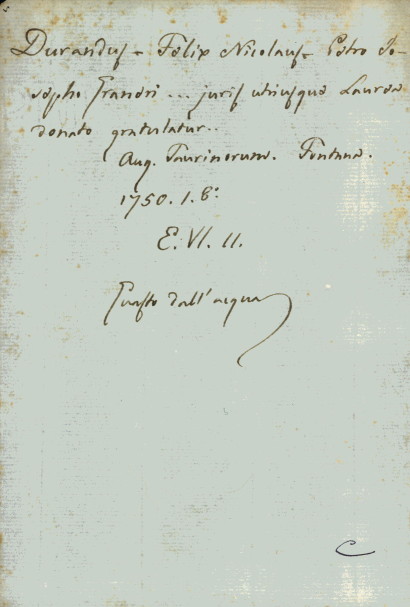 Durandus - Felix Nicolaus - Petro Jo-
sepho Franori ... juris utriusque Laurea
donato gratulatur..
Aug. Taurinorum. Fontana.
1750. 1. 8°
E. VI. 11.
Guasto dall'acqua
C